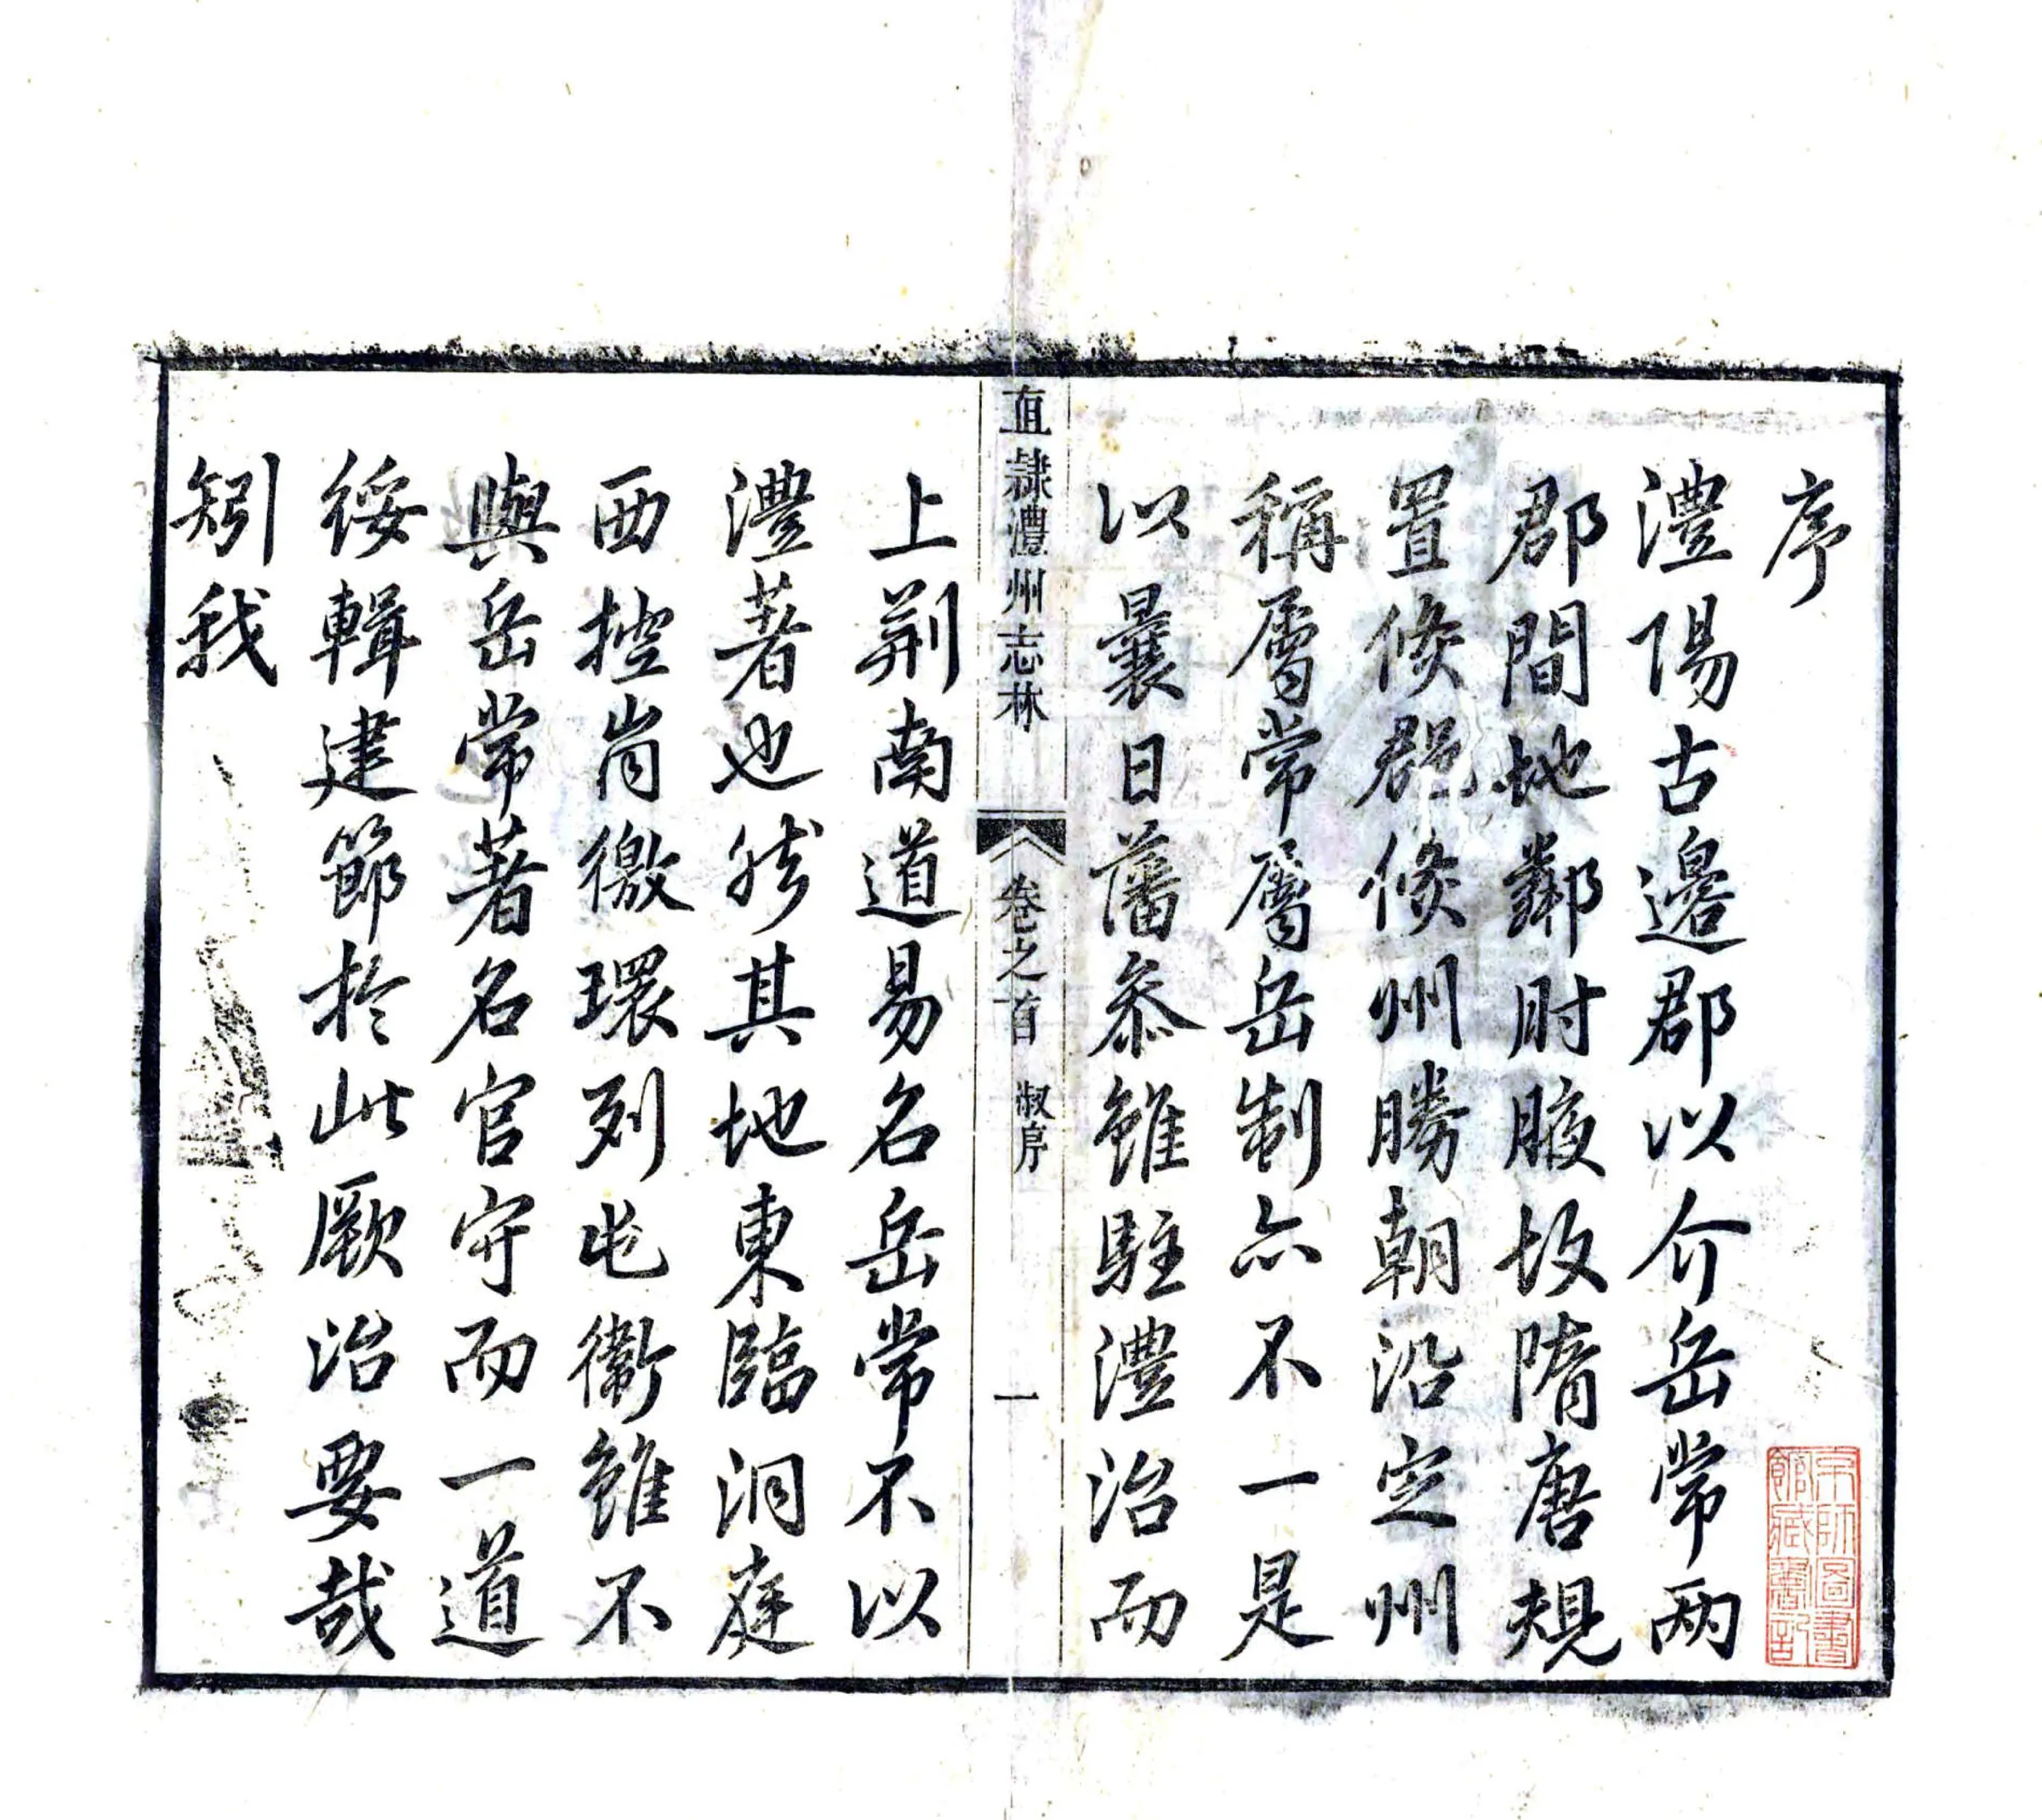 序
澧陽古邊郡以介岳常两
郡間地鄰肘腋故隋唐規
置倐郡倐州勝朝沿定州
稱屬常屬岳制亦不一是
以曩日藩叅雖駐澧治而
直隸澧州志林
卷之首
叙序
一
上荆南道易名岳常不以
澧著也然其地東臨洞庭
西控崗徼環列屯衞雖不
與岳常著名官守而一道
綏輯建節於此厥治要哉
矧我
京師圖書
館藏書記